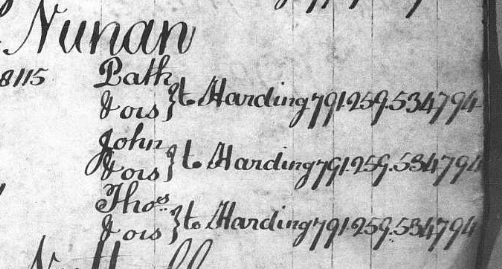 Nunan
8115 Path
& ors } to Harding 791.259.534794
John
& ors } to Harding 791.259.534794
Thos
& ors } to Harding 791.259.534794